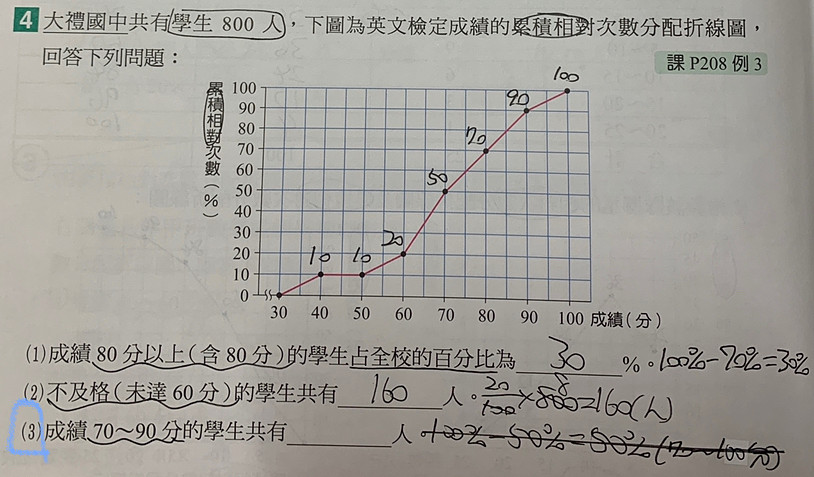 4 大禮國中共有學生 800 人，下圖為英文檢定成績的累積相對次數分配折線圖，
回答下列問題：
課 P208 例 3
累積相對次數(%)
100
90
80
70
60
50
40
30
20
10
0
10 10 20 50 70 90 100
30 40 50 60 70 80 90 100 成績(分)
(1)成績 80 分以上(含 80 分)的學生占全校的百分比為 30 %。100%-70%=30%
(2)不及格(未達 60 分)的學生共有 160 人。20/100×800=160(人)
(3)成績 70～90 分的學生共有 人。100%-50%=50%(70~100分)